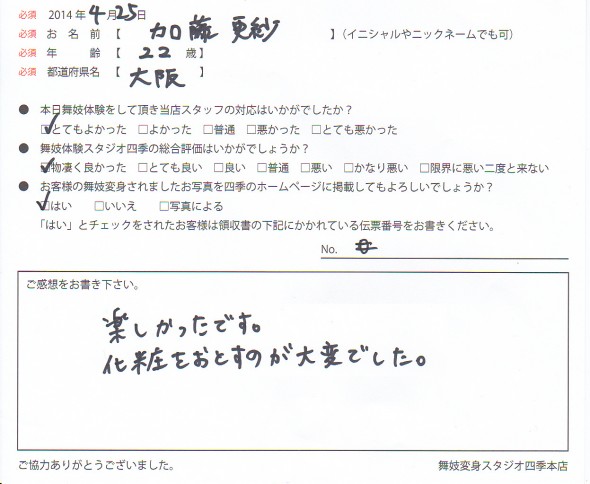 必須 2014年4月25日
必須 お名前【 加藤 更紗 】(イニシャルやニックネームでも可)
必須 年齢【 22 歳】
必須 都道府県名【 大阪 】
● 本日舞妓体験をして頂き当店スタッフの対応はいかがでしたか？
☑とてもよかった □よかった □普通 □悪かった □とても悪かった
● 舞妓体験スタジオ四季の総合評価はいかがでしょうか？
☑物凄く良かった □とても良い □良い □普通 □悪い □かなり悪い □限界に悪い二度と来ない
● お客様の舞妓変身されましたお写真を四季のホームページに掲載してもよろしいでしょうか？
☑はい □いいえ □写真による
「はい」とチェックをされたお客様は領収書の下記にかかれている伝票番号をお書きください。
No.
ご感想をお書き下さい。
楽しかったです。
化粧をおとすのが大変でした。
ご協力ありがとうございました。 舞妓変身スタジオ四季本店